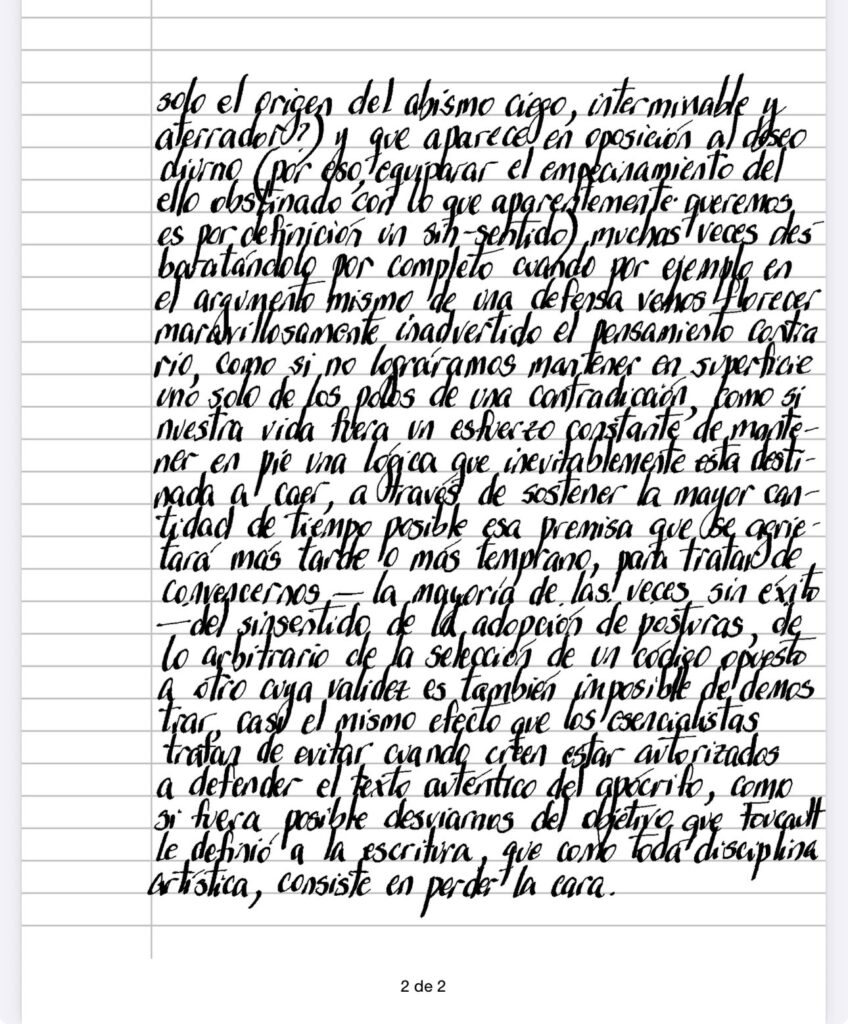 solo el origen del abismo ciego, interminable y
aterrador?) y que aparece en oposición al deseo
diurno (por eso, equiparar el empecinamiento del
ello obstinado con lo que aparentemente queremos
es por definición un sin-sentido) muchas veces des
baratándolo por completo cuando por ejemplo en
el argumento mismo de una defensa vemos florecer
maravillosamente inadvertido el pensamiento contra
rio, como si no lográramos mantener en superficie
uno solo de los polos de una contradicción, como si
nuestra vida fuera un esfuerzo constante de mante-
ner en pie una lógica que inevitablemente esta desti-
nada a caer, a través de sostener la mayor can-
tidad de tiempo posible esa premisa que se agrie-
tará más tarde o más temprano, para tratar de
convencernos — la mayoría de las veces sin éxito
— del sinsentido de la adopción de posturas, de
lo arbitrario de la selección de un código opuesto
a otro cuya validez es también imposible de demos
trar, casi el mismo efecto que los esencialistas
tratan de evitar cuando creen estar autorizados
a defender el texto auténtico del apócrifo, como
si fuera posible desviarnos del objetivo que Foucault
le definió a la escritura, que como toda disciplina
artística, consiste en perder la cara.
2 de 2